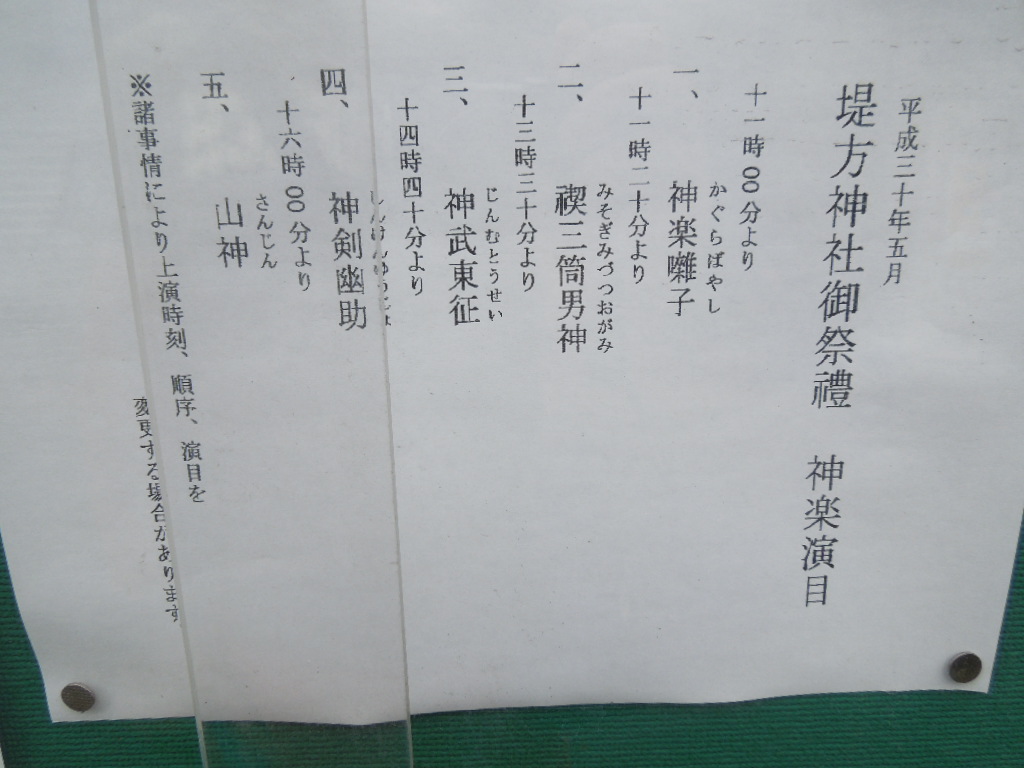 平成三十年五月
堤方神社御祭禮 神楽演目
十一時00分より
一、 神楽囃子
かぐらばやし
十一時二十分より
二、 禊三筒男神
みそぎみづつおがみ
十三時三十分より
三、 神武東征
じんむとうせい
十四時四十分より
四、 神剣幽助
しんけんゆうじょ
十六時00分より
五、 山神
さんじん
※諸事情により上演時刻、順序、演目を
変更する場合があります